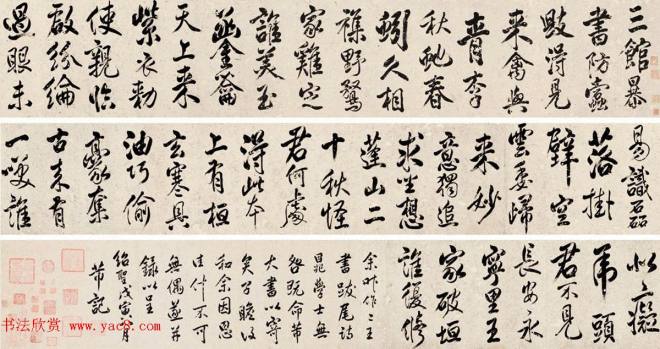 三館暴
書防蠹
毀得見
来禽與
青李
秋虵春
蚓久相
雜野鶩
家雞定
誰美玉
函金龠
天上来
紫衣勑
使親臨
啟紛綸
過眼未
易識磊
落掛
壁空
雲委歸
来妙
意獨追
求坐想
蓬山二
十秋怪
君何處
得此本
上有桓
玄寒具
油巧偷
豪奪
古来有
一咲誰
似癡
虎頭
君不見
長安永
寧里王
家破垣
誰復修
余昨作二王
書跋尾詩
晁學士無
咎既命芾
大書以寄
矣公
和余因思
佳什不可
無偶遂并
録以呈
紹聖戊寅八月
芾記
书法欣赏
www.yac8.com